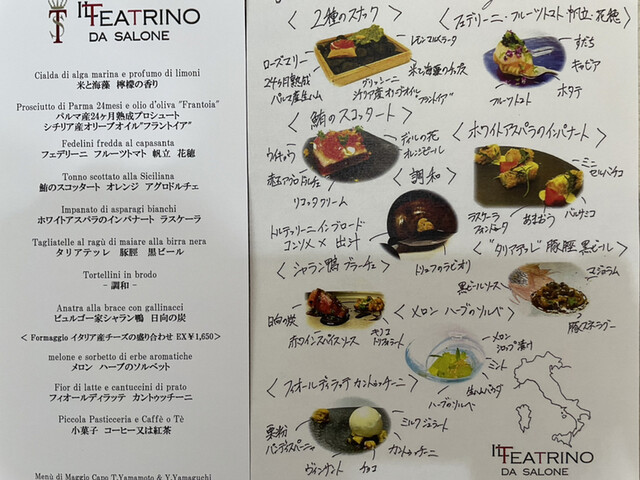 IL TEATRINO
DA SALONE
Cialda di alga marina e profumo di limoni
米と海藻 檸檬の香り
Prosciutto di Parma 24mesi e olio d'oliva "Frantoia"
パルマ産24ヶ月熟成プロシュート
シチリア産オリーブオイル"フラントイア"
Fedelini fredda al capasanta
フェデリーニ フルーツトマト 帆立 花穂
Tonno scottato alla Siciliana
鮪のスコッタート オレンジ アグロドルチェ
Impanato di asparagi bianchi
ホワイトアスパラのインパナート ラスケーラ
Tagliatelle al ragù di maiare alla birra nera
タリアテッレ 豚脛 黒ビール
Tortellini in brodo
- 調和 -
Anatra alla brace con gallinacci
ビュルゴー家シャラン鴨 日向の炭
< Formaggio イタリア産チーズの盛り合わせ EX￥1,650>
melone e sorbetto di erbe aromatiche
メロン ハーブのソルベット
Fior di latte e cantuccini di prato
フィオールディラッテ カントゥッチーニ
Piccola Pasticceria e Caffè o Tè
小菓子 コーヒー又は紅茶
Menù di Maggio Capo T.Yamamoto & Y.Yamaguchi
<2種のスナック>
ローズマリー
レモンマルメラータ
24ヶ月熟成
パルマ産生ハム
グリッシーニ
シチリア産オリーブオイル
"フラントイア"
米と海藻のチップス
<フェデリーニ・フルーツトマト 帆立・花穂>
すだち
キャビア
ホタテ
フルーツトマト
<鮪のスコッタート>
ウイキョウ
ディルの花
オレンジピール
赤玉アグロドルチェ
リコッタクリーム
<ホワイトアスパラのインパナート>
ミニ
セルバチコ
ラスケーラ
フォンドゥータ
あまおう
バルサミコ
<調和>
トルテッリーニインブロード
コンソメ × 出汁
トリュフのラビオリ
<"タリアテッレ" 豚脛 黒ビール>
マジョラム
黒ビールソース
豚スネラグー
<シャラン鴨 ブラーチェ>
日向の炭
赤ワインスパイスソース
キノコ
トリフォラート
<メロン ハーブのソルベ>
メロン
シロップ漬け
ミント
生ハムパウダ
ハーブのソルベ
<フィオールディラッテ カントゥッチーニ>
栗粉
パンディスペーニャ
ミルクジェラート
カントゥッチーニ
ヴィンサント
チョコ
IL TEATRINO
DA SALONE